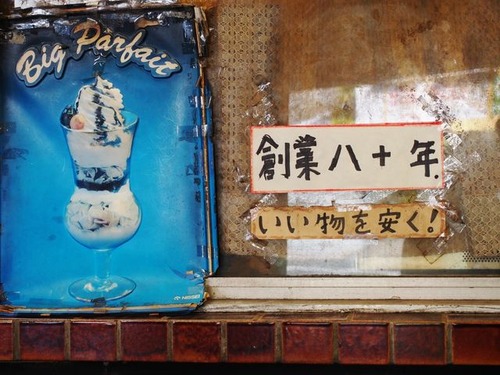 Big Parfait
創業八十年.
いい物を安く!